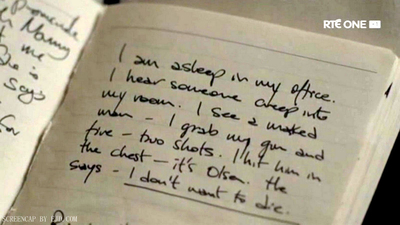 RTÉ ONE
Promenade
Nanny
me
is
says
for
I am asleep in my office.
I hear someone creep into
my room. I see a masked
man – I grab my gun and
fire – two shots. I hit him in
the chest – it's Olsen. He
says – I don't want to die.